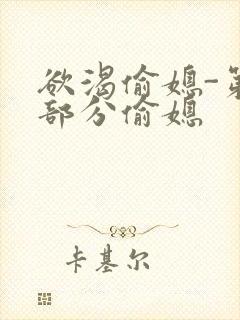 欲渴偷媳-第
部分偷媳
卡基尔